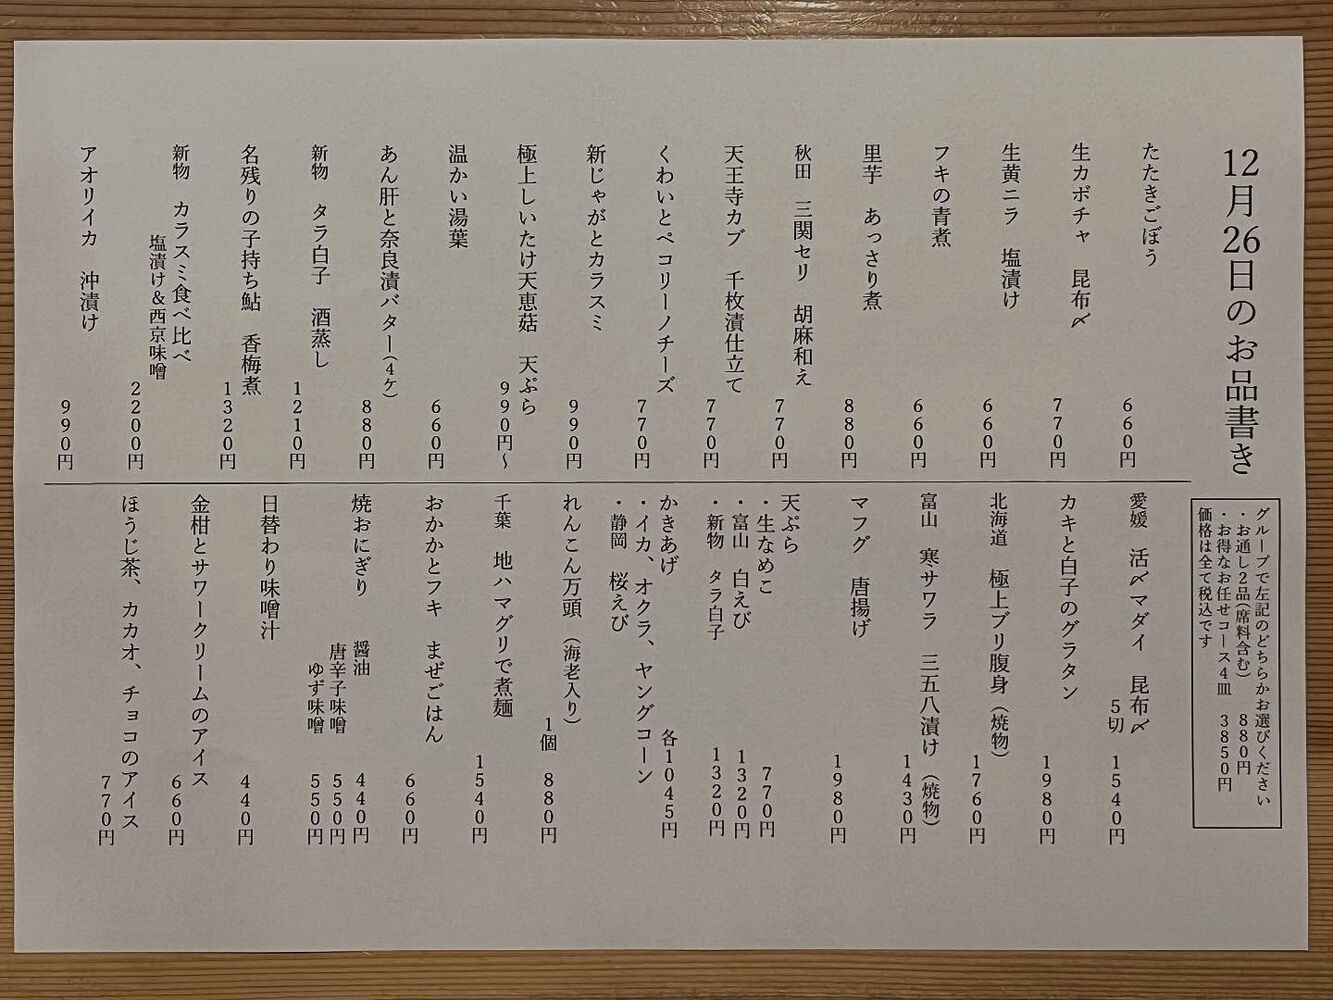 12月26日のお品書き
たたきごぼう 660円
生カボチャ 昆布〆 770円
生黄ニラ 塩漬け 660円
フキの青煮 660円
里芋 あっさり煮 880円
秋田 三関セリ 胡麻和え 770円
天王寺カブ 千枚漬仕立て 770円
くわいとペコリーノチーズ 770円
新じゃがとカラスミ 990円
極上しいたけ天恵菇 天ぷら 990円～
温かい湯葉 660円
あん肝と奈良漬バター(4ケ) 880円
新物 タラ白子 酒蒸し 1210円
名残りの子持ち鮎 香梅煮 1320円
新物 カラスミ食べ比べ
塩漬け&西京味噌 2200円
アオリイカ 沖漬け 990円
グループで左記のどちらかお選びください
・お通し2品(席料含む) 880円
・お得なお任せコース4皿 3850円
価格は全て税込です
愛媛 活〆マダイ 昆布〆
5切 1540円
カキと白子のグラタン 1980円
北海道 極上ブリ腹身(焼物) 1760円
富山 寒サワラ 三五八漬け(焼物) 1430円
マフグ 唐揚げ 1980円
天ぷら
・生なめこ 770円
・富山 白えび 1320円
・新物 タラ白子 1320円
かきあげ 各1045円
・イカ、オクラ、ヤングコーン
・静岡 桜えび
れんこん万頭(海老入り)
1個 880円
千葉 地ハマグリで煮麺 1540円
おかかとフキ まぜごはん 660円
焼おにぎり 醤油 440円
唐辛子味噌 550円
ゆず味噌 550円
日替わり味噌汁 440円
金柑とサワークリームのアイス 660円
ほうじ茶、カカオ、チョコのアイス 770円